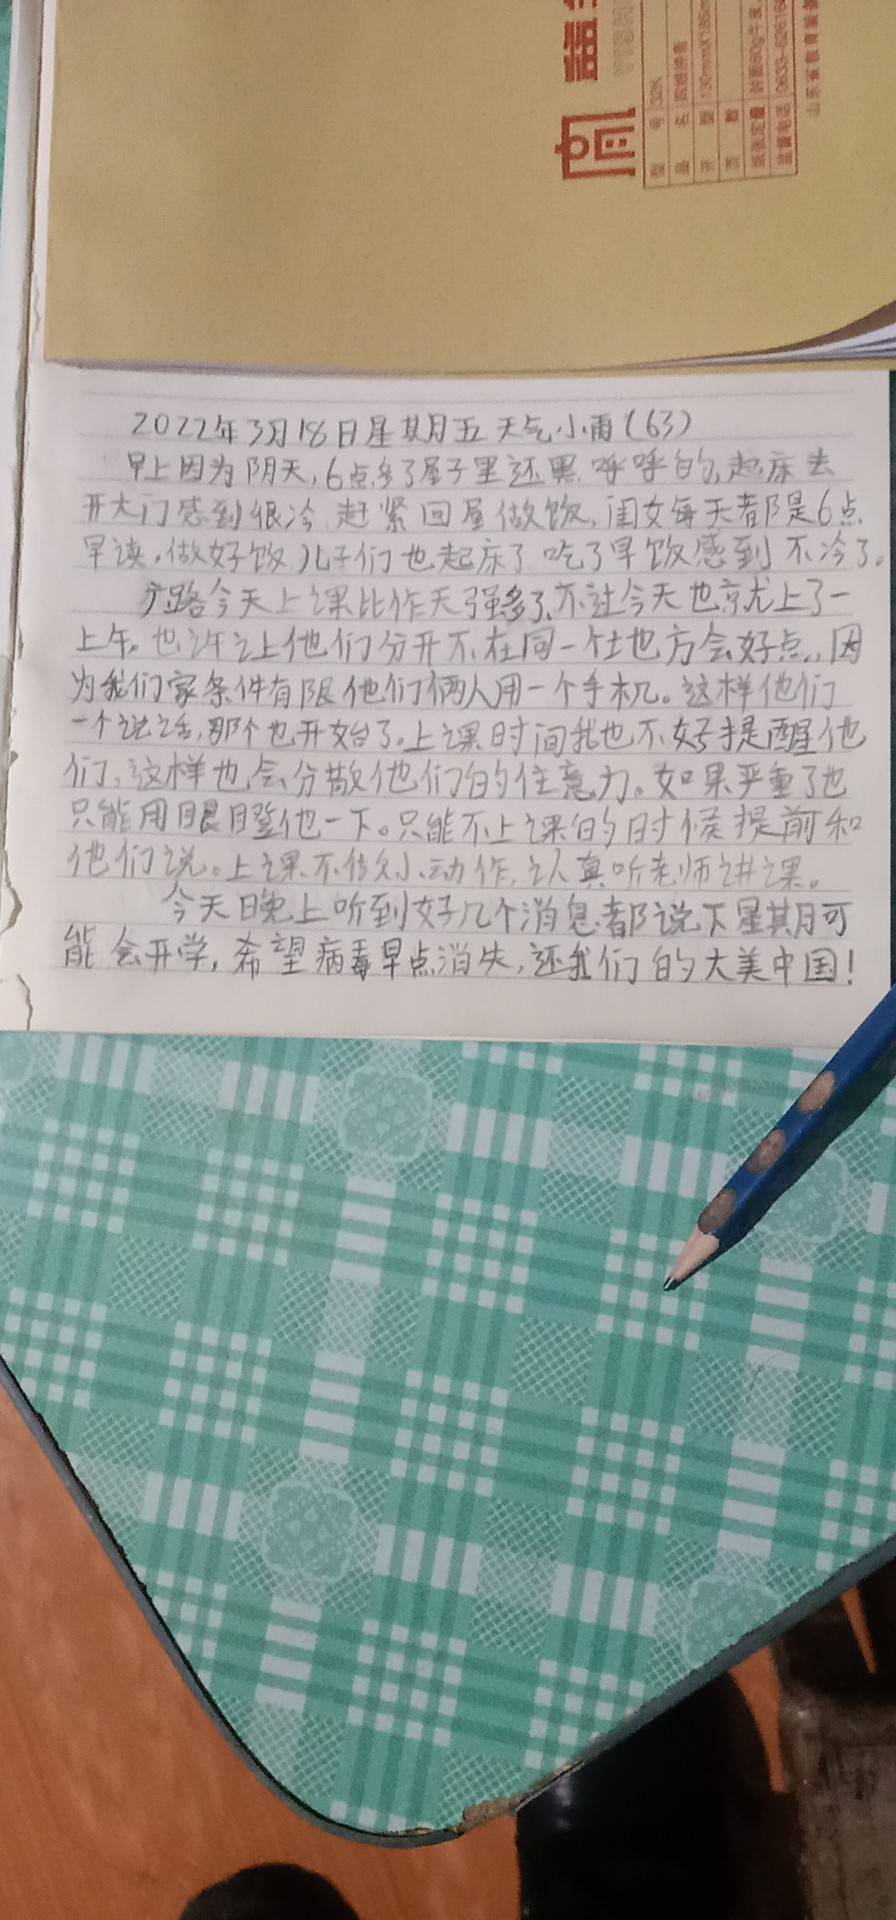 2022年3月18日星期五 天气小雨(63)
早上因为阴天,6点多了屋子里还黑呼呼的,起床去
开大门感到很冷,赶紧回屋做饭,闺女每天都是6点
早读,做好饭儿子们也起床了吃了早饭感到不冷了。
路今天上课比作天强多了,不过今天也就上了一
上午。也许让他们分开不在同一个地方会好点,因
为我们家条件有限他们俩人用一个手机。这样他们
一个说话,那个也开始了。上课时间我也不好提醒他
们,这样也会分散他们的住意力。如果严重了也
只能用眼瞪他一下。只能不上课的时候提前和
他们说。上课不做小动作,认真听老师讲课。
今天晚上听到好几个消息都说下星期可
能会开学,希望病毒早点消失,还我们的大美中国!
型 号 32K
品 名
开 型 130mmX185m
页 数
纸张定量 封面80g牛皮
监督电话 0633-62616
山东省教育装备